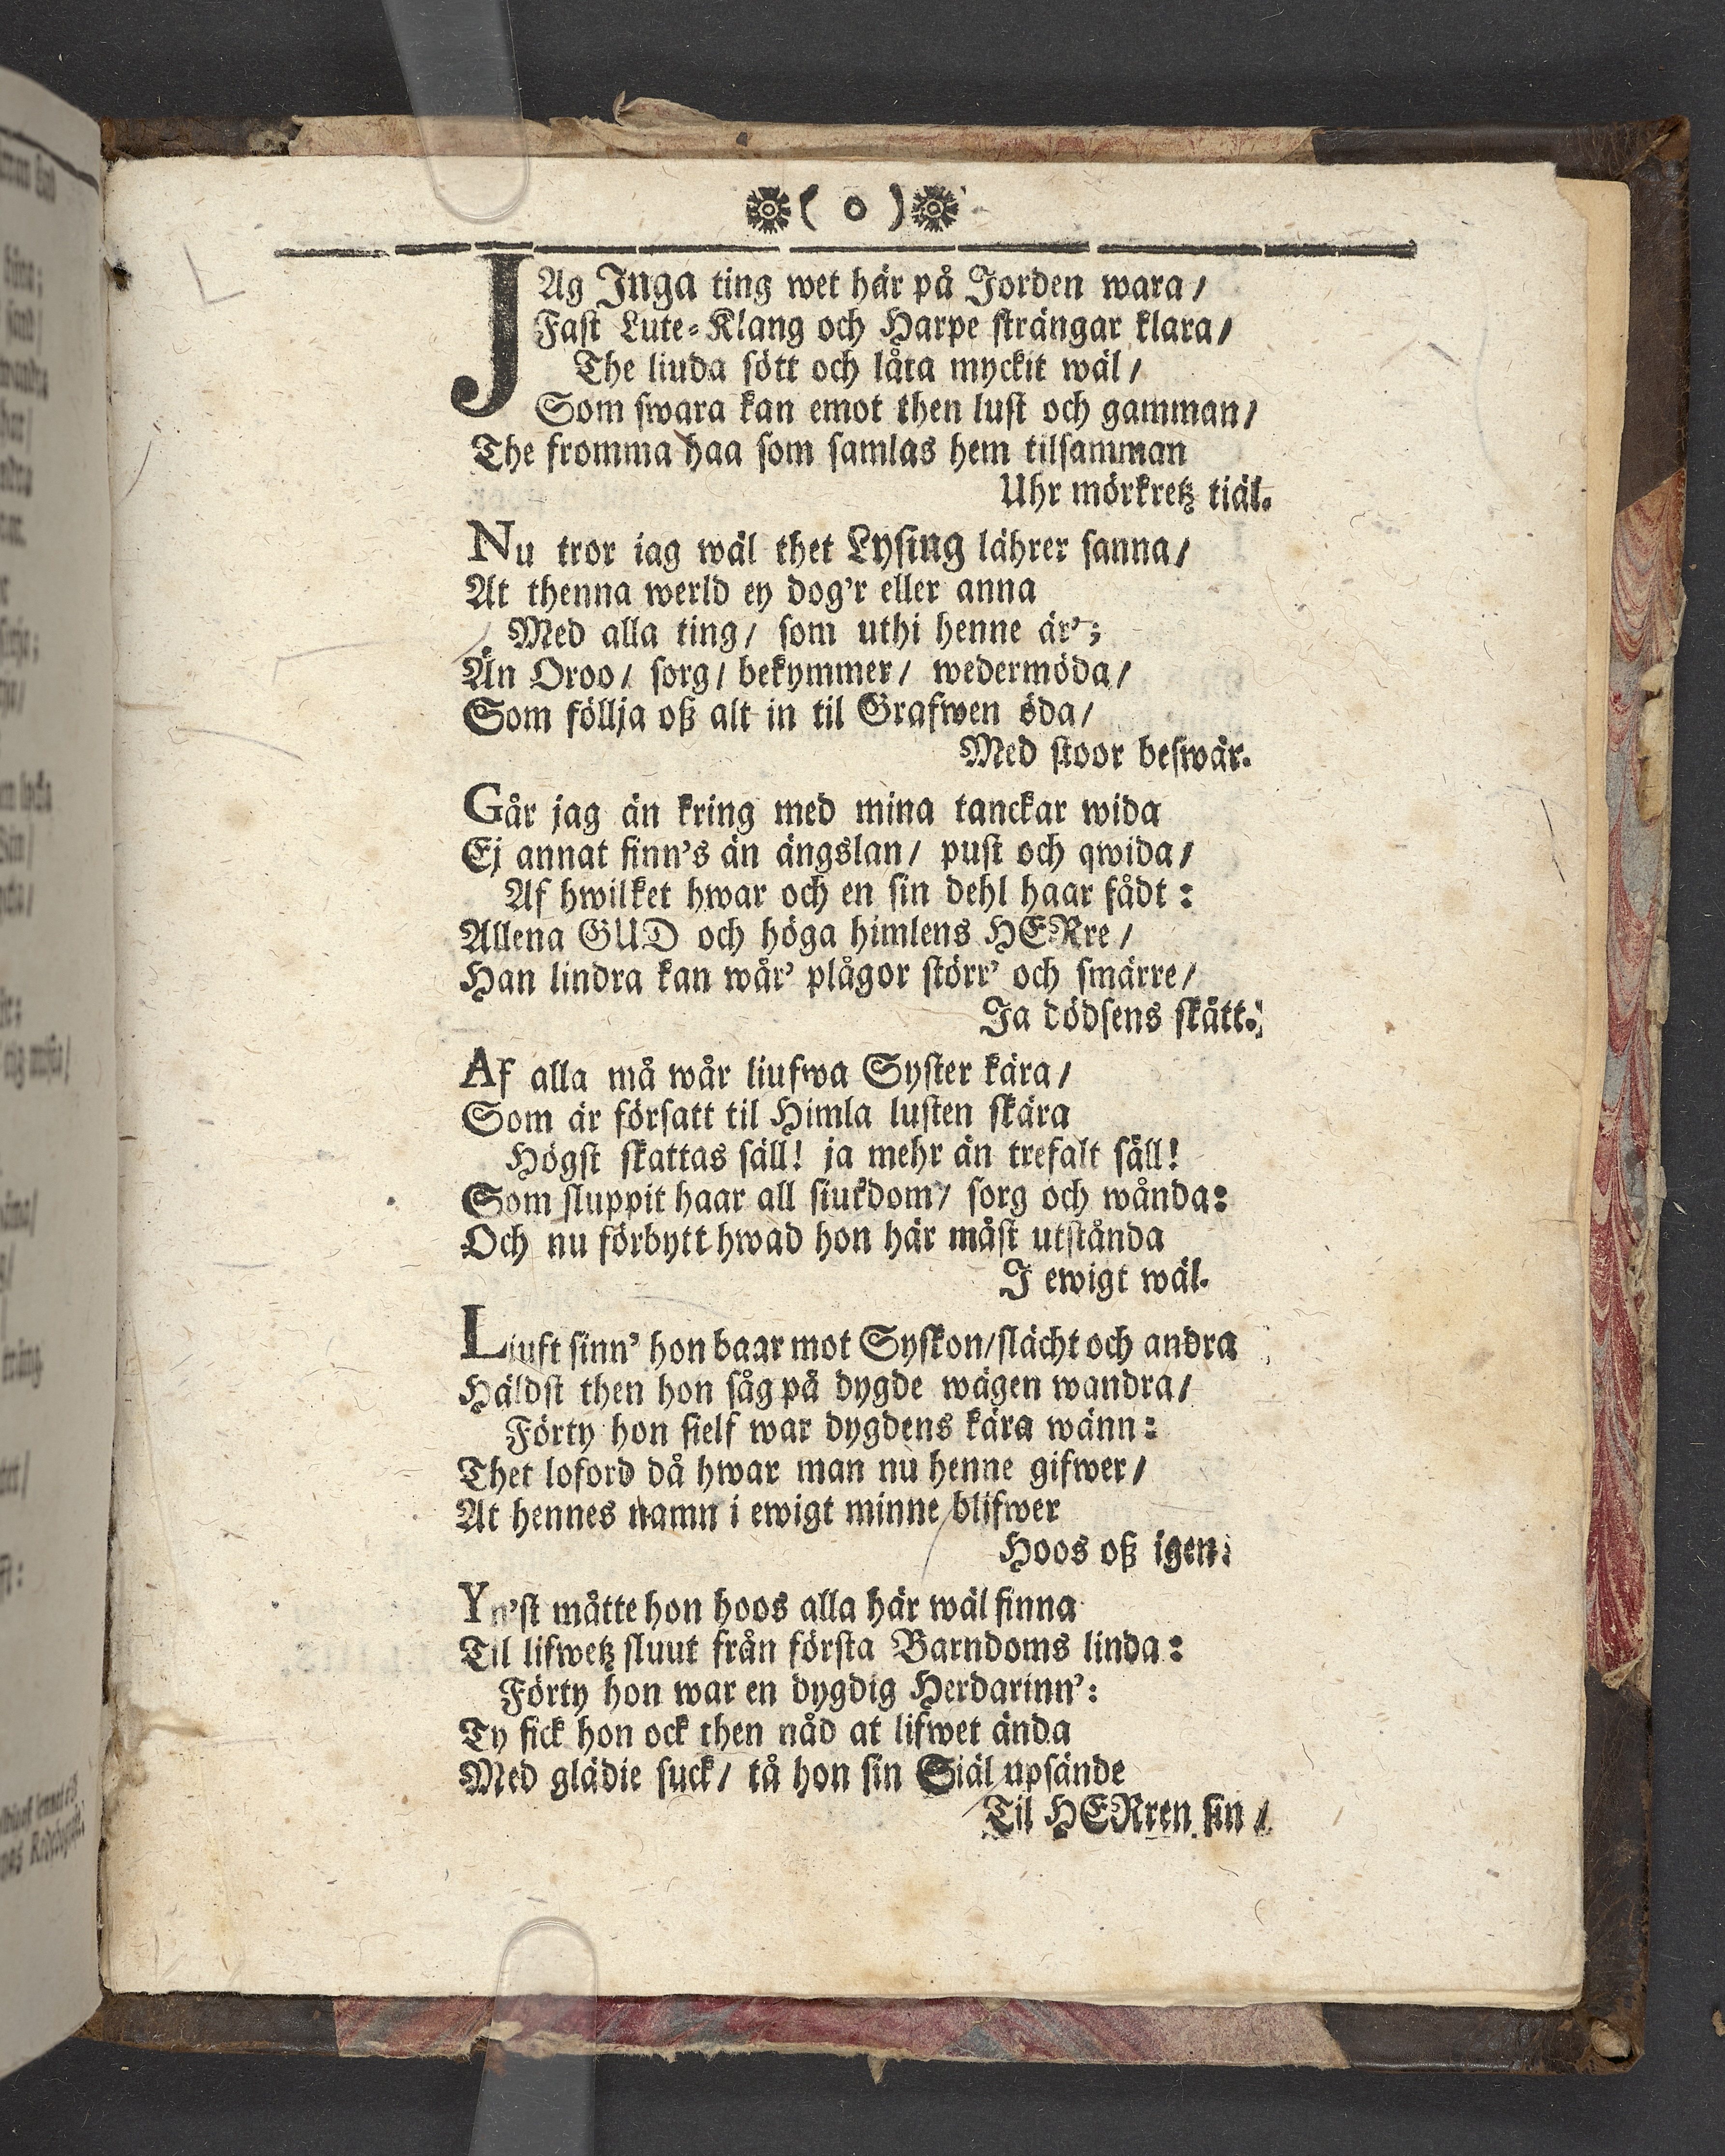 ( o )
JAg Inga ting wet här på Jorden wara /
Fast Lute-Klang och Harpe strängar klara /
The liuda sött och låta myckit wäl /
Som swara kan emot then lust och gamman /
The fromma haa som samlas hem tilsamman
Uhr mörkretz tiäl.
Nu tror iag wäl thet Lysing lährer sanna /
At thenna werld ey dog'r eller anna
Med alla ting / som uthi henne är' ;
Än Oroo / sorg / bekymmer / wedermöda /
Som föllja oß alt in til Grafwen öda /
Med stoor beswär.
Går jag än kring med mina tanckar wida
Ej annat finn's än ängslan / pust och qwida /
Af hwilket hwar och en sin dehl haar fådt :
Allena GUD och höga himlens HERre /
Han lindra kan wår' plågor störr' och smärre /
Ja dödsens skått.
Af alla må wår liufwa Syster kära /
Som är försatt til Himla lusten skära
Högst skattas säll! ja mehr än trefalt säll!
Som sluppit haar all siukdom / sorg och wånda :
Och nu förbytt hwad hon här måst utstånda
I ewigt wäl.
Liuft sinn' hon baar mot Syskon / slächt och andra
Häldst then hon såg på dygde wägen wandra /
Förty hon sielf war dygdens kära wänn :
Thet loford då hwar man nu henne gifwer /
At hennes namn i ewigt minne blifwer
Hoos oß igen.
Yn'st måtte hon hoos alla här wäl finna
Til lifwetz sluut från första Barndoms linda :
Förty hon war en dygdig Herdarinn' :
Ty fick hon ock then nåd at lifwet ända
Med glädie suck / tå hon sin Siäl upsände
Til HERren sin /